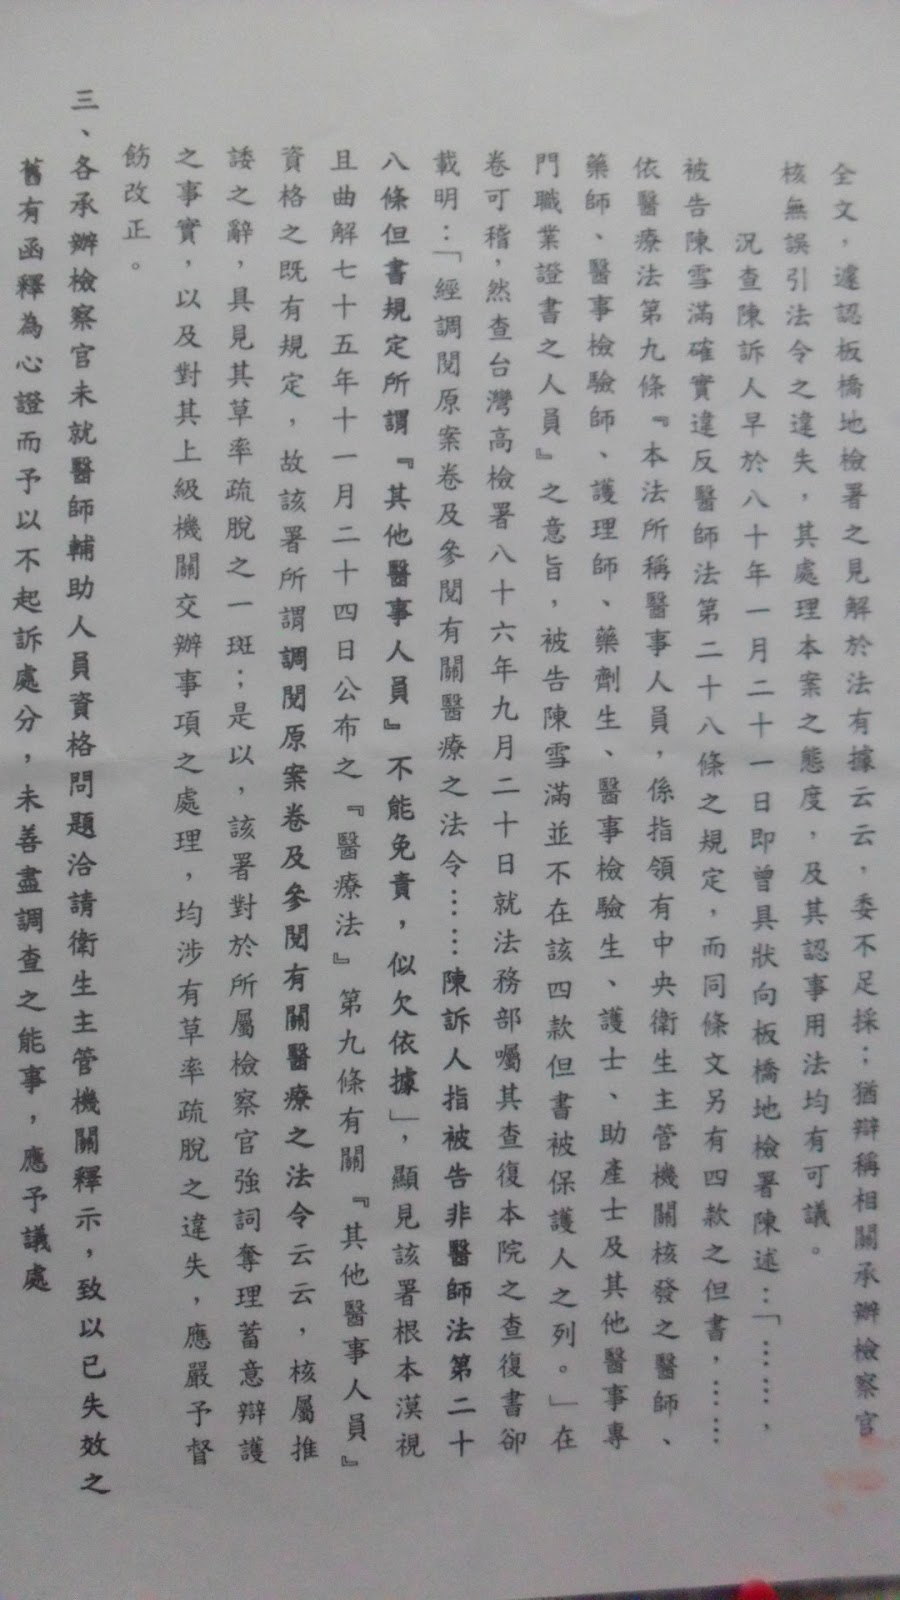 全文，遽認板橋地檢署之見解於法有據云云，委不足採；猶辯稱相關承辦檢察官
核無誤引法令之違失，其處理本案之態度，及其認事用法均有可議。
況查陳訴人早於八十年一月二十一日即曾具狀向板橋地檢署陳述：「……，
被告陳雪滿確實違反醫師法第二十八條之規定，而同條文另有四款之但書，……
依醫療法第九條『本法所稱醫事人員，係指領有中央衛生主管機關核發之醫師、
藥師、醫事檢驗師、護理師、藥劑生、醫事檢驗生、護士、助產士及其他醫事專
門職業證書之人員』之意旨，被告陳雪滿並不在該四款但書被保護人之列。」在
卷可稽，然查台灣高檢署八十六年九月二十日就法務部囑其查復本院之查復書卻
載明：「經調閱原案卷及參閱有關醫療之法令……陳訴人指被告非醫師法第二十
八條但書規定所謂『其他醫事人員』不能免責，似欠依據」，顯見該署根本漠視
且曲解七十五年十一月二十四日公布之『醫療法』第九條有關『其他醫事人員』
資格之既有規定，故該署所謂調閱原案卷及參閱有關醫療之法令云云，核屬推
諉之辭，具見其草率疏脫之一斑；是以，該署對於所屬檢察官強詞奪理蓄意辯護
之事實，以及對其上級機關交辦事項之處理，均涉有草率疏脫之違失，應嚴予督
飭改正。
三、各承辦檢察官未就醫師輔助人員資格問題洽請衛生主管機關釋示，致以已失效之
舊有函釋為心證而予以不起訴處分，未善盡調查之能事，應予議處